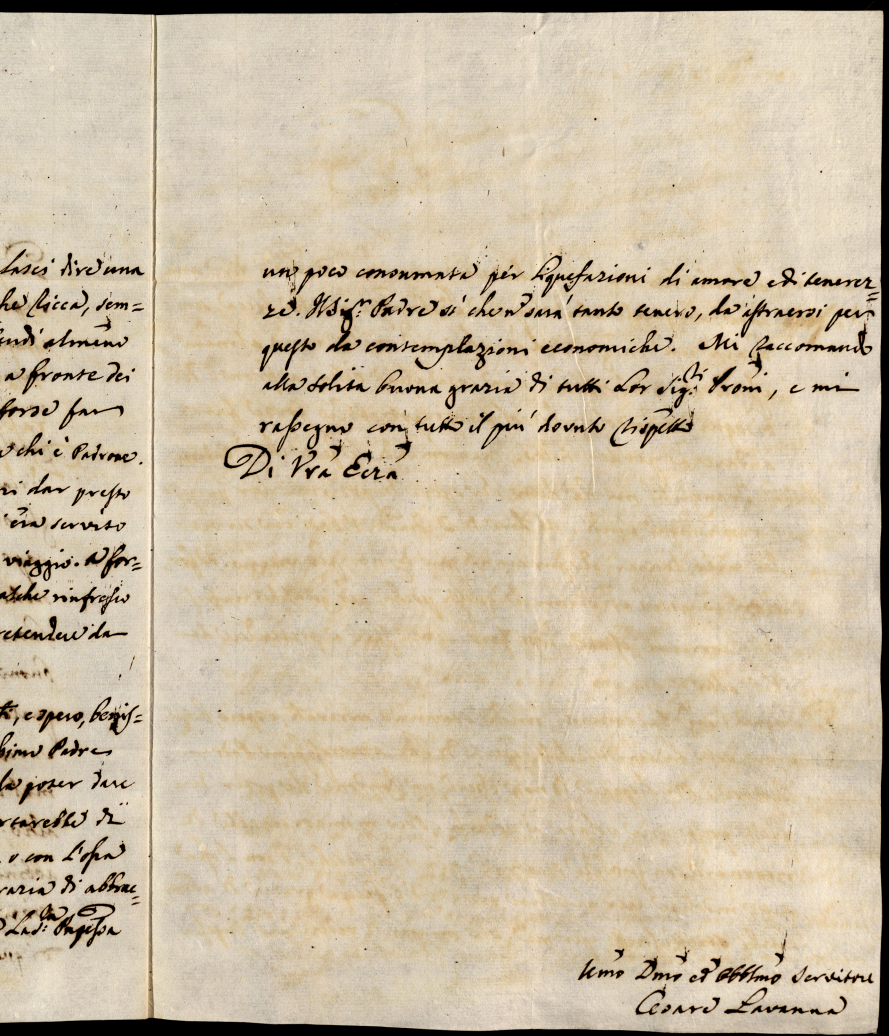 Lasci dire una
che ricca, sem=
studi almeno
a fronte dei
forse far
chi è Padrone.
dar presto
era servito
viaggio. A for=
alche rinfresco
retendere da
, e spero, beniss=
ssimo Padre
la poter dare
rtarebbe di
o con l'ossa
razia di abbrac=
Lad:
un poco consumata per liquefazioni di amore e di tenerez=
ze. Il Sig.r Padre sì che n̄ sarà tanto tenero, da astraersi per
questo da contemplazioni economiche. Mi raccomando
alla solita buona grazia di tutti Lor Sig.ri Proñi, e mi
rassegno con tutto il più dovuto rispetto
Di Vra Ecza
Umo Dmo ed Obblmo Servitore
Cesare Lavanna